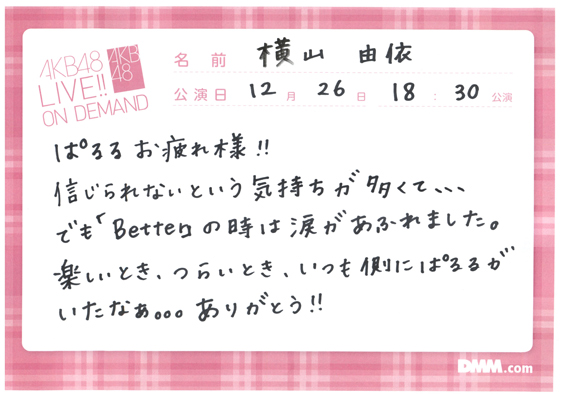 AKB48
LIVE!!
ON DEMAND
AKB
48
名前 横山 由依
公演日 12月 26日 18:30公演
ぱるるお疲れ様!!
信じられないという気持ちが多くて、、、
でも「Better」の時は涙があふれました。
楽しいとき、つらいとき、いつも側にぱるるが
いたなぁ。。。ありがとう!!
DMM.com